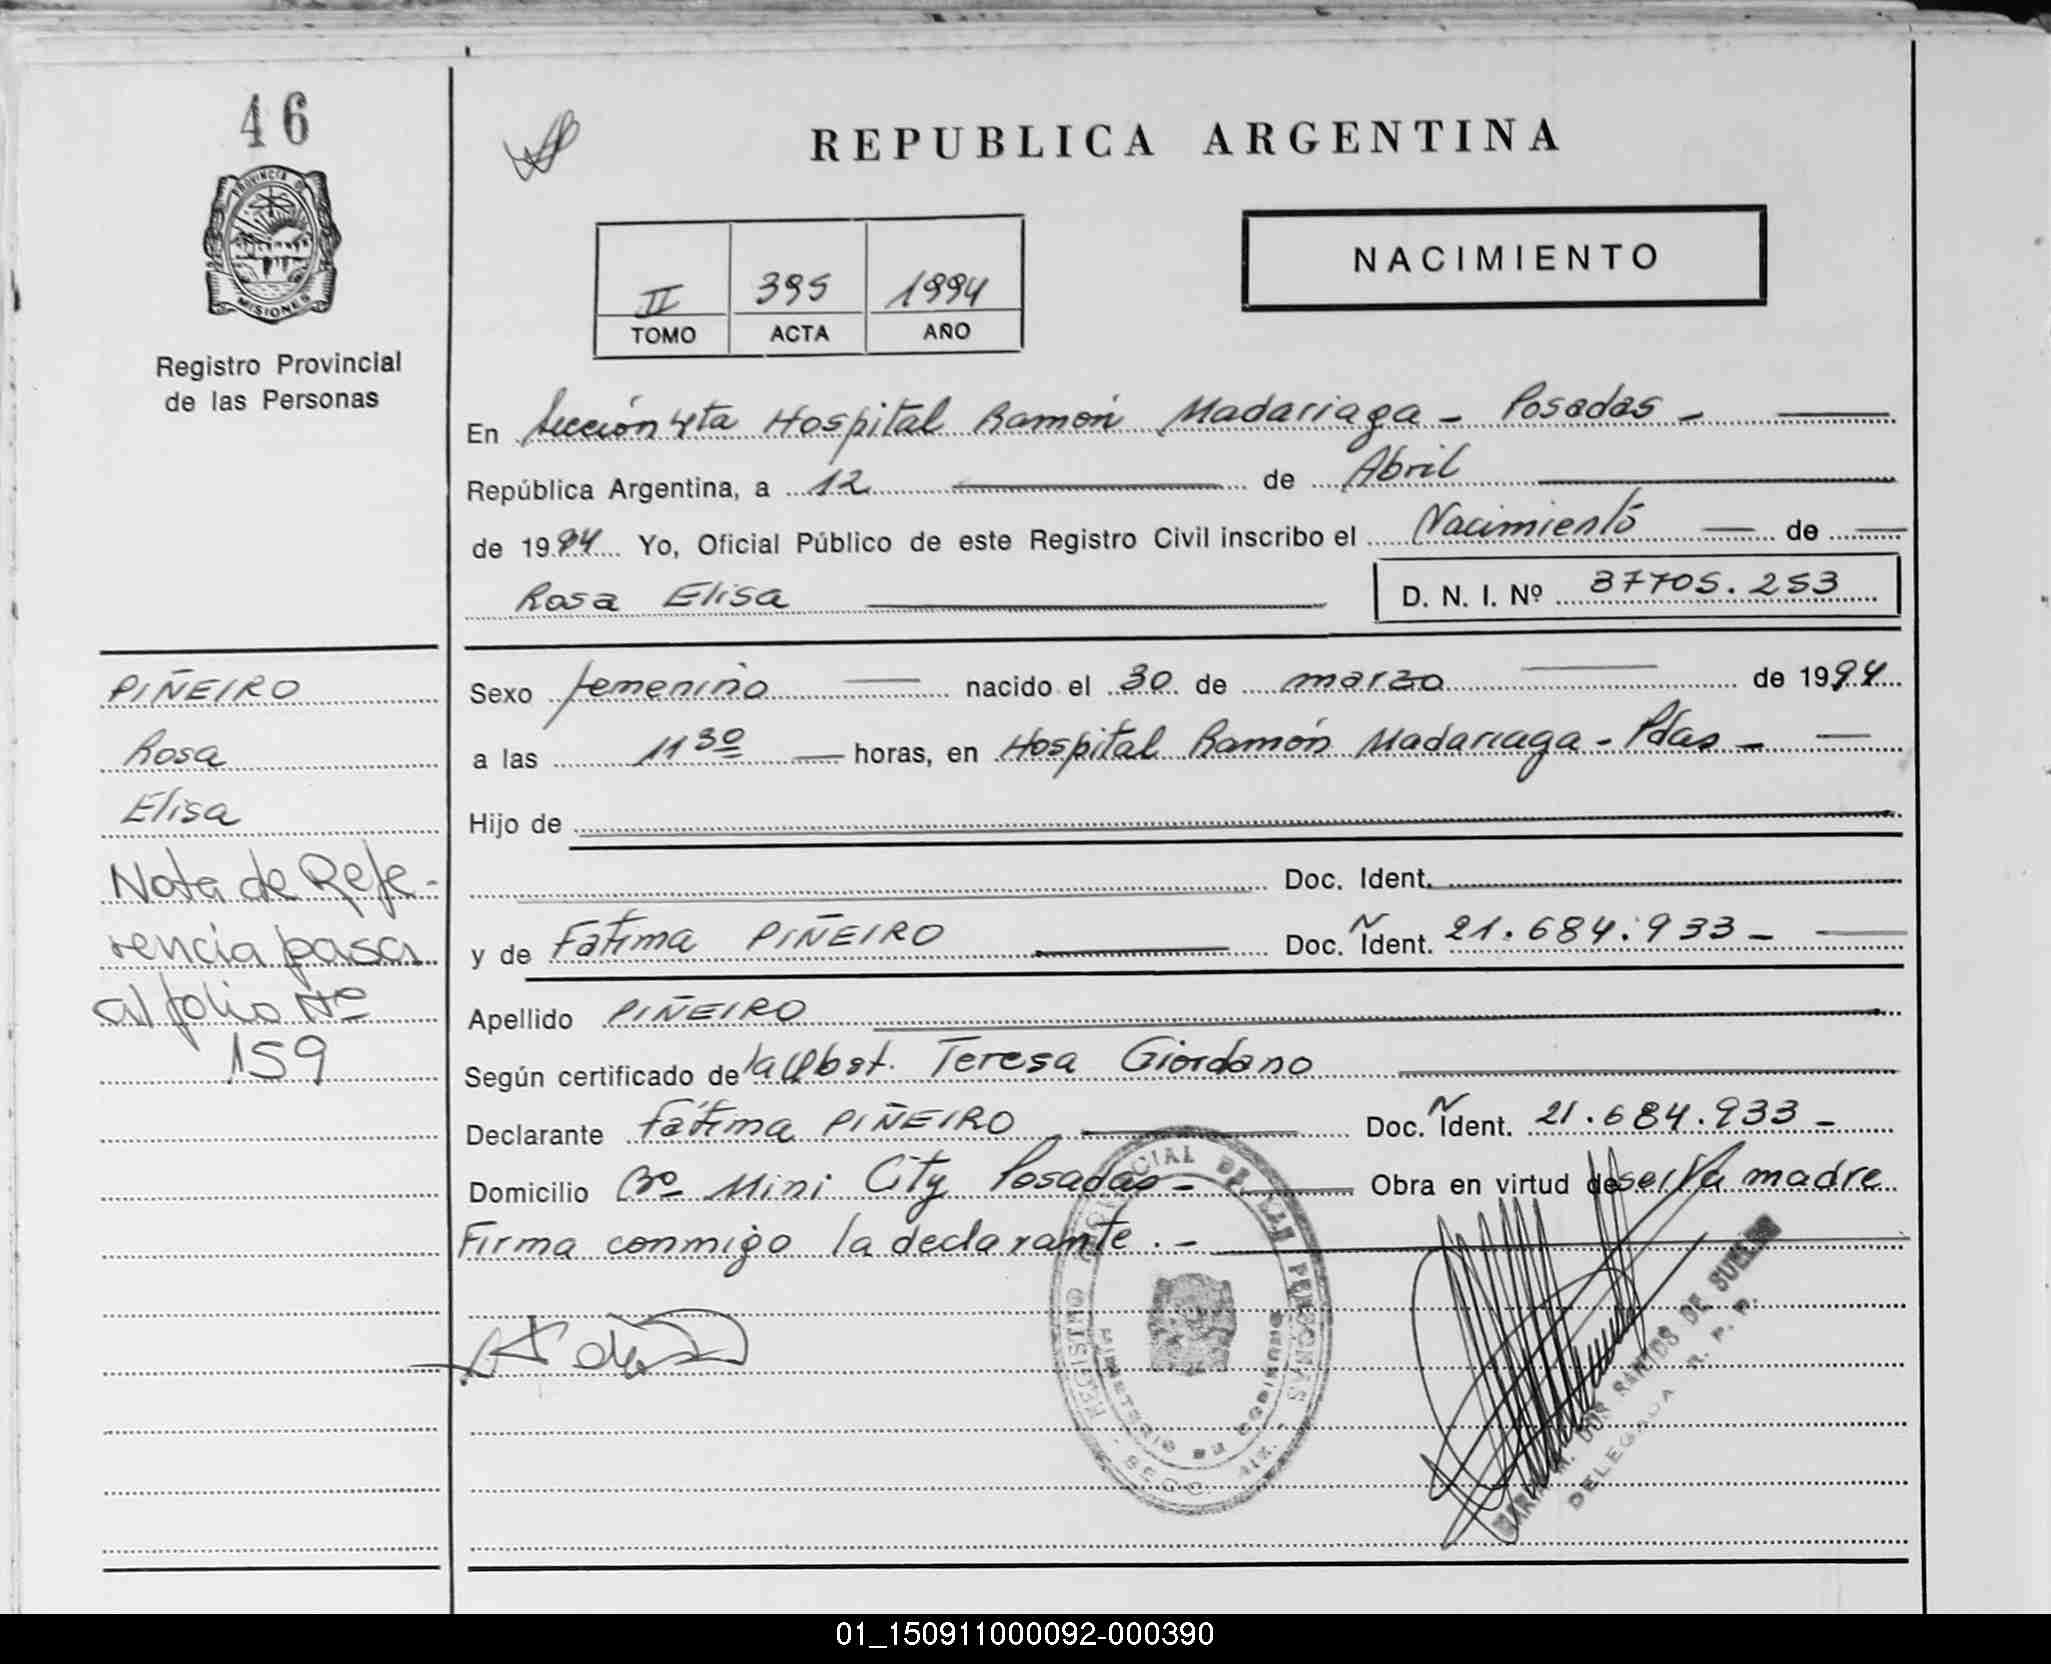 46
PROVINCIA DE
MISIONES
Registro Provincial
de las Personas
REPUBLICA ARGENTINA
NACIMIENTO
II 395 1994
TOMO ACTA AÑO
En Sección 4ta Hospital Ramón Madariaga - Posadas -
República Argentina, a 12 de Abril
de 1994 Yo, Oficial Público de este Registro Civil inscribo el Nacimiento de
Rosa Elisa D. N. I. Nº 37705.253
PIÑEIRO
Rosa
Elisa
Nota de Refe-
rencia pasa
al folio Nº
159
Sexo femenino nacido el 30 de marzo de 1994
a las 11 30 horas, en Hospital Ramón Madariaga - Pdas -
Hijo de
Doc. Ident.
y de Fátima PIÑEIRO Doc. Ident. 21.684.933 -
Apellido PIÑEIRO
Según certificado de la Obst. Teresa Giordano
Declarante Fátima PIÑEIRO Doc. Ident. 21.684.933 -
Domicilio Bº Mini City Posadas - Obra en virtud de ser la madre
Firma conmigo la declarante . -
REGISTRO PROVINCIAL DE LAS PERSONAS
MINISTERIO DE GOBIERNO
DOS SANTOS DE
DELEGADA R. P. P.
01_150911000092-000390